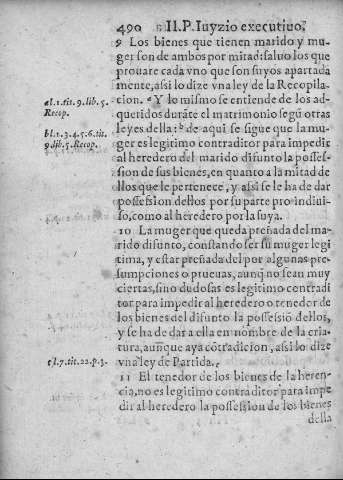 490 II. P. Iuyzio executiuo.
9 Los bienes que tienen marido y mu-
ger son de ambos por mitad: saluo los que
prouare cada vno que son suyos apartada
mente, assi lo dize vna ley de la Recopila-
a l. 1. tit. 9. lib. 5. Recop.
cion. a Y lo mismo se entiende de los ad-
queridos durãte el matrimonio segũ otras
b l. 1. 3. 4. 5. 6. tit. 9. lib. 5. Recop.
leyes della: b de aqui se sigue que la mu-
ger es legitimo contraditor para impedir
al heredero del marido difunto la posses-
sion de sus bienes, en quanto a la mitad de
llos que le pertenece, y assi se le ha de dar
possession dellos por su parte pro indiui-
so, como al heredero por la suya.
10 La muger que queda preñada del ma-
rido difunto, constando ser su muger legi
tima, y estar preñada del por algunas pre-
sumpciones o prueuas, aunq̃ no sean muy
ciertas, sino dudosas es legitimo contradi
tor para impedir al heredero o tenedor de
los bienes del difunto la possessiõ dellos,
y se ha de dar a ella en nombre de la cria-
tura, aunque aya cõtradicion, assi lo dize
c l. 7. tit. 22. p. 3.
vna ley de Partida.
11 El tenedor de los bienes de la heren-
cia, no es legitimo contraditor para impe
dir al heredero la possession de los bienes
della